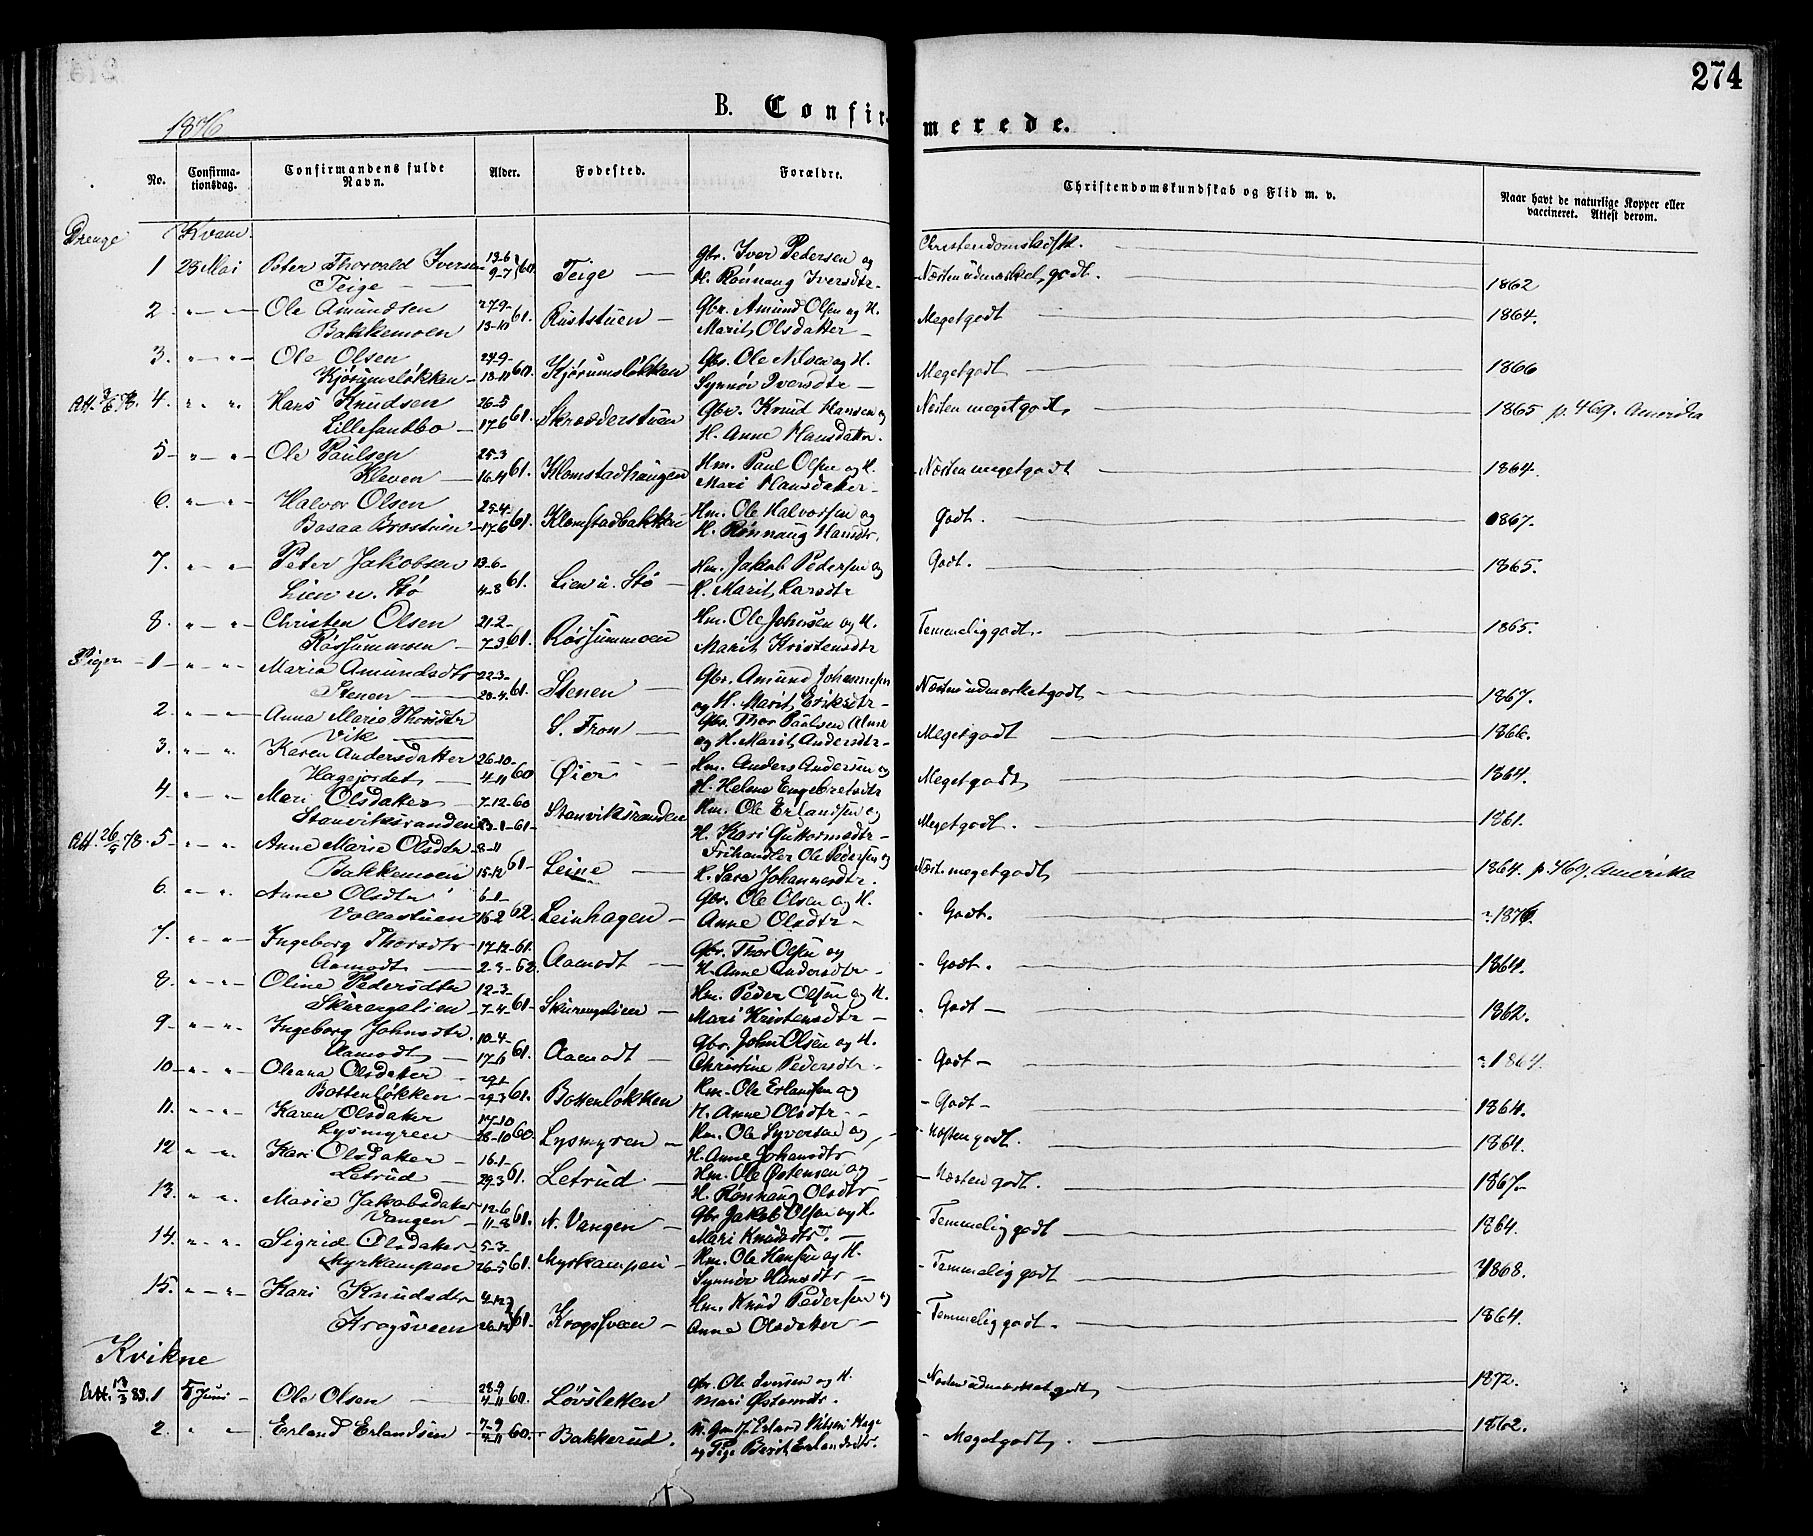 274
1876
B. Confir-
merede.
No.
Confirma-
tionsdag.
Confirmandens fulde
Navn.
Alder.
Fødested.
Forældre.
Christendomskundskab og Flid m. v.
Naar havt de naturlige Kopper eller
vaccineret. Attest derom.
Drenge Kvam.
1 28 Mai Peter Thorvald Iversen 13-6 Gbr. Iver Pedersen og
Teige 9-7 60 Teige H. Rønnaug Iversdtr Næsten udmærket godt. 1862
2. " " Ole Amundsen 27-9- Gbr. Amund Olsen og H.
Bakkemoen 13-10 61. Ruststuen Marit Olsdatter Meget godt 1864.
3. " " Ole Olsen 24-9- Gbr. Ole Nilsen og H.
Kjørumsløkken 18-11 60. Kjørumsløkken Synnøv Iversdtr Meget godt 1866
Att. 78. 4. " " Hans Knudsen 26-5 Gbr. Knud Hansen og
Lillesandbo 17-6 61. Skrædderstuen H. Anne Hansdatter. Næsten meget godt 1865 p. 469. Amerika
5 " " Ole Paulsen 25-3 Hm. Paul Olsen og H.
Kleven 16-4 61. Klomstadhaugen Mari Hansdatter Næsten meget godt 1864.
6. " " Halvor Olsen 25-4. Hm. Ole Halvorsen og
17-6 61. Klomstadbakken H. Rønnaug Hansdtr. Godt. 1867.
7. " " Peter Jakobsen 13-6- Hm. Jakob Pedersen og
Lien u. Stø 4-8 61. Lien u. Stø H. Marit Larsdtr Godt. 1865.
8. " " Christen Olsen 21-2- Hm. Ole Johnsen og H.
Røssummoen 7-3 61. Røssummoen Marit Kristensdtr Temmelig godt. 1865.
Piger 1 " " Maria Amundsdtr 22-3- Gbr. Amund Johannesen
Stenen 20-4. 61. Stenen og H. Marit Eriksdtr Næsten udmærket godt 1867.
2. " " Anna Marie Thorsdtr Gbr. Thor Paulsen
Vik S. Fron og H. Marit Andersdtr Meget godt 1866.
3. " " Karen Andersdatter 26-10- Hm. Anders Andersen og
Hagejordet 4-11 60 Øier H. Helene Engebretsdtr Meget godt 1864.
4. " " Mari Olsdatter 7-12-60 Hm. Ole Erlandsen og
Stanviksranden 13-1-61 Stanviksranden H. Kari Guttormsdtr Meget godt. 1861.
Att. 26/4 78. 5 " " Anne Marie Olsdtr 8-11 Frihandler Ole Pedersen og
Bakkemoen 15-12 61 Leine H. Sara Johannesdtr. Næst. meget godt 1864. p. 469. Amerika
6. " " Anne Olsdtr 6-1- Gbr. Ole Olsen og H.
Vollastuen 16-2 62. Leinhagen Anne Olsdtr Godt. 1876.
7. " " Ingeborg Thorsdtr 17-12-61. Gbr. Thor Olsen og
Aamodt 2-3-62. Aamodt H. Anne Andersdtr Godt. 1864.
8. " " Oline Pedersdtr 12-3- Hm. Peder Olsen og H.
Skurengslien 7-4 61 Skurengslien Mari Kristensdtr Godt 1862.
9 " " Ingeborg Johnsdtr. 10-4- Gbr. John Olsen og H.
Aamodt 17-6 61. Aamodt Christine Pedersdtr Godt 1864.
10 " " Oleana Olsdatter Hm. Ole Erlandsen og
Bottenløkken 29-3 61. Bottenløkken H. Anne Olsdtr Godt 1864.
11. " " Karen Olsdatter 17-10 Hm. Ole Syversen og
Lysmyren 28-10 60. Lysmyren H. Anne Johansdtr Næsten godt. 1864.
12 " " Kari Olsdatter 16-1- Hm. Ole Østensen og
Letrud 29-3 61. Letrud H. Rønnaug Olsdtr Næsten godt. 1867.
13. " " Marie Jakobsdatter 12-6 Gbr. Jakob Olsen og H.
Vangen 11-8 61. N. Vangen Mari Knudsdtr. Temmelig godt 1864.
14. " " Sigrid Olsdatter 5-3- Hm. Ole Hansen og H.
Myrkampen 26-5 61. Myrkampen Synnøv Hansdtr Temmelig godt 1868.
15. " " Kari Knudsdtr 4-12 Hm. Knud Pedersen og
Krogsveen 26-12 61. Krogsveen Anne Olsdatter Temmelig godt. 1864.
Kvikne
Att. 83. 1 5 Juni Ole Olsen 28-9 Gbr. Ole Iversen og H.
4-11 60. Løvsletten Mari Østensdtr. Næsten udmærket godt 1872.
2. " " Erland Erlandsen 7-9 Erland Nilsen Hage
4-11 60. Bakkerud. og Pige Berit Erlandsdtr. Meget godt. 1862.